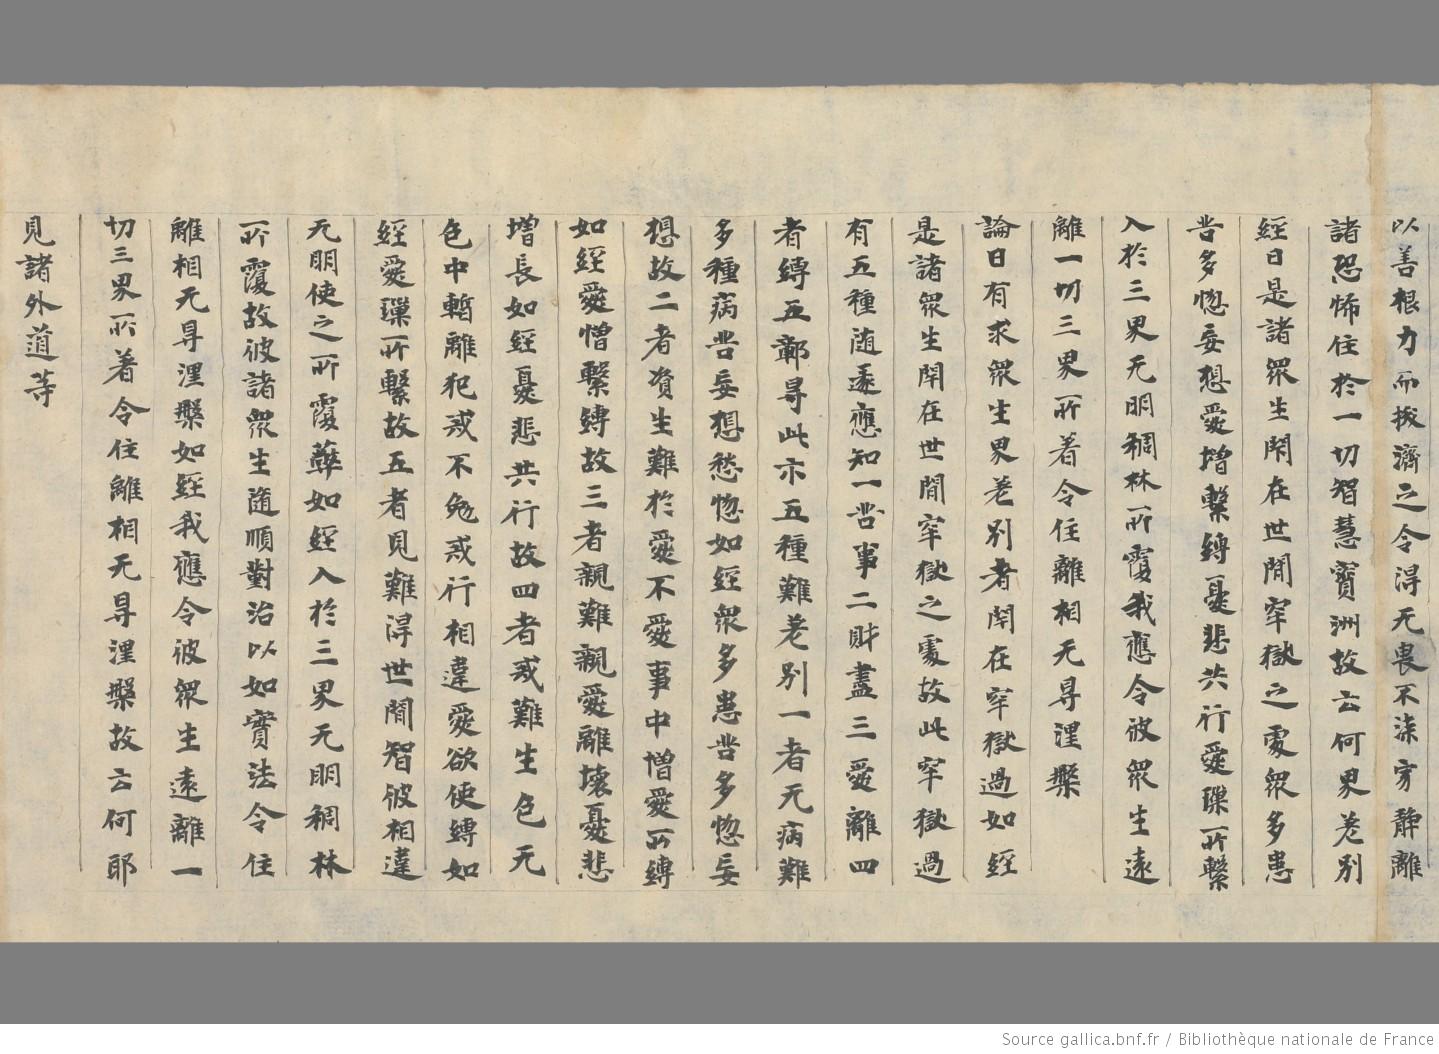 以善根力而拔濟之令得无畏不染寂靜離
諸恐怖住於一切智慧寶洲故云何界差別
經曰是諸眾生閇在世間牢獄之處眾多患
苦多惚妄想愛增繫縛憂悲共行愛璅所繫
入於三界无明稠林所覆我應令彼眾生遠
離一切三界所著令住離相无㝵涅槃
論曰有求眾生界差別者閇在牢獄過如經
是諸眾生閇在世間牢獄之處故此牢獄過
有五種随逐應知一苦事二財盡三愛離四
者縛五鄣㝵此亦五種難差別一者无病難
多種病苦妄想愁惚如經眾多患苦多惚妄
想故二者資生難於愛不愛事中憎愛所縛
如經愛憎繫縛故三者親難親愛離壞憂悲
增長如經憂悲共行故四者戒難生色无
色中暫離犯戒不免戒行相違愛欲使縛如
經愛璅所繫故五者見難得世間智彼相違
无明使之所覆蔽如經入於三界无明稠林
所覆故彼諸眾生随順對治以如實法令住
離相无㝵涅槃如經我應令彼眾生遠離一
切三界所著令住離相无㝵涅槃故云何耶
見諸外道等
Source gallica.bnf.fr / Bibliothèque nationale de France